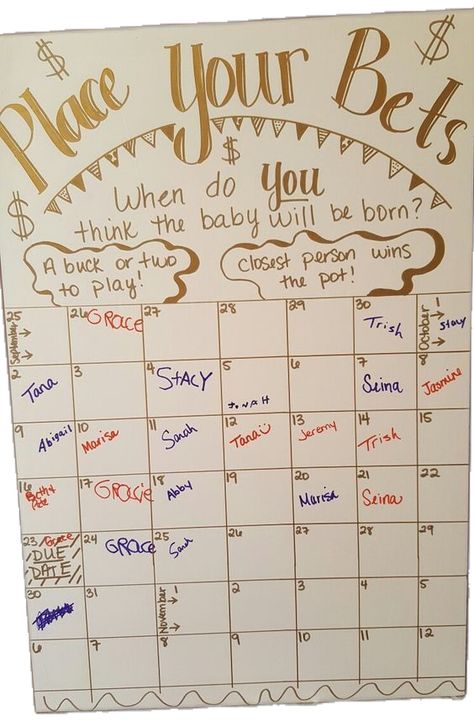 $ $
Place Your Bets
$
$
When do You
think the baby will be born?
A buck or two
to play!
Closest person wins
the pot!
25 26 27 28 29 30 1
September → → GRACE Trish October → → Stacy
2 3 4 5 6 7 8
Tana STACY JONAH Seina Jasmine
9 10 11 12 13 14 15
Abigail Marisa Sarah Tana Jeremy Trish
16 17 18 19 20 21 22
Pete GRACIE Abby Marisa Seina
23 24 25 26 27 28 29
DUE GRACE
DATE
30 31 November → 1 → 2 3 4 5
6 7 8 9 10 11 12